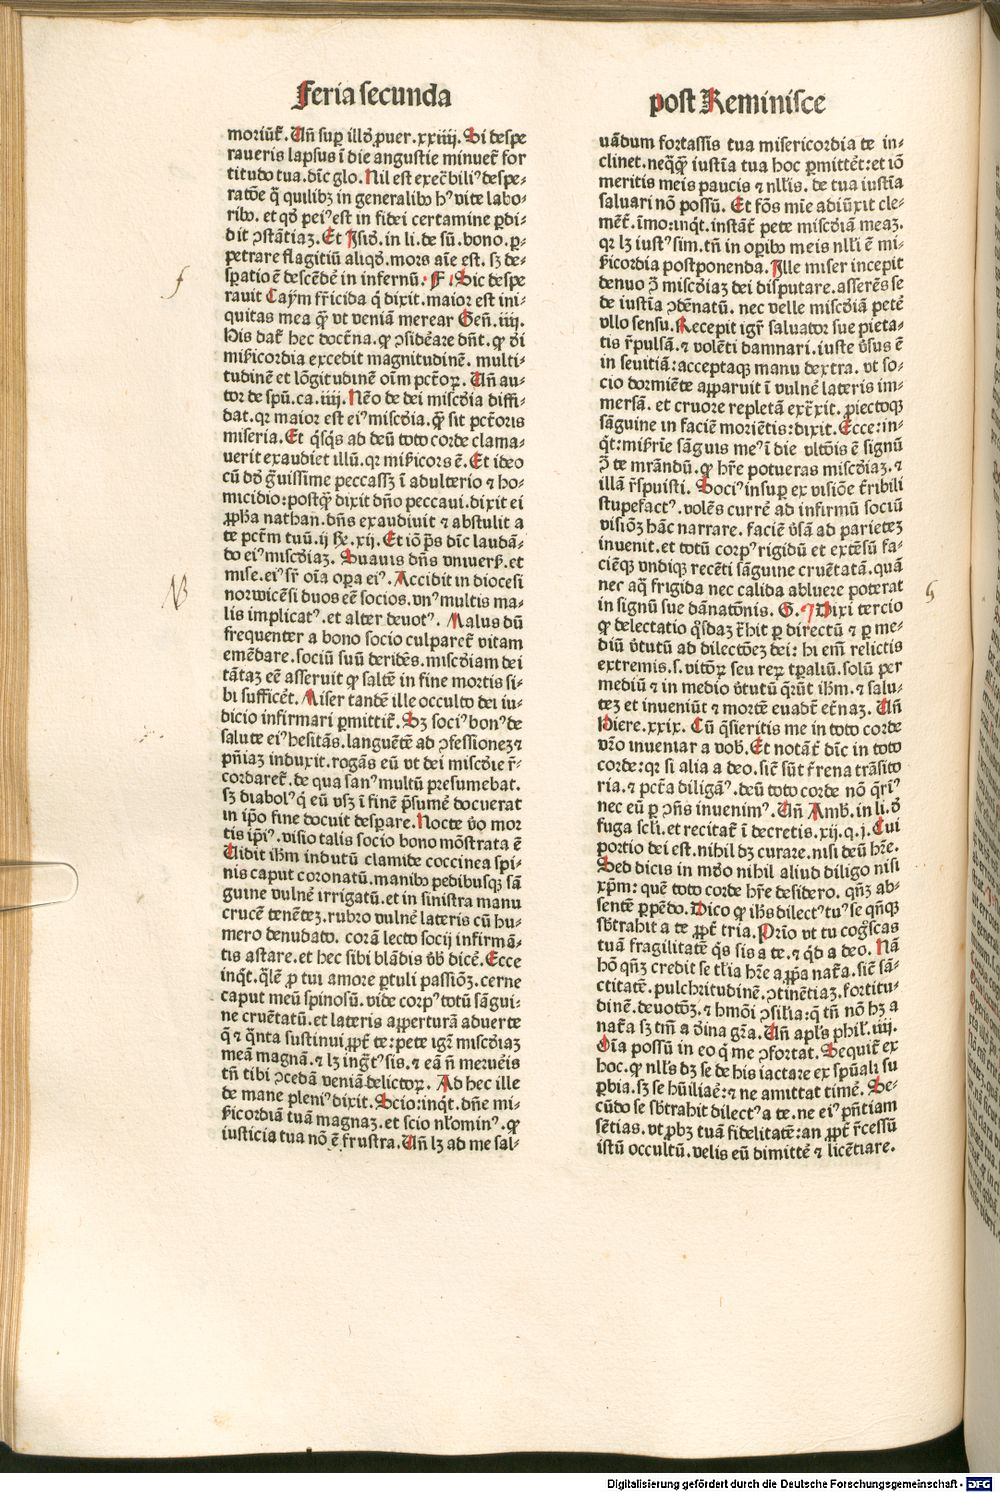 Feria secunda
moriūt᷑. Uñ suꝑ illo ꝓuer. xxiiij. Si despe
raueris lapsus ī die angustie minuet᷑ for
titudo tua. dic̄ glo. Nil est execͣbiliꝰ despe-
ratōe q̄ quilibꝫ in generalibꝰ hꝰ vite labo-
ribꝰ. et qd̓ peiꝰ est in fidei certamine ꝑdi-
dit ꝯstātiaꝫ. Et Isid̓. in li. de sū. bono. ꝑ-
petrare flagitiū aliqd̓. mors aīe est. sꝫ de-
sꝑatio ē descēdē in infernū. F Sic despe
rauit Caym fr̄icida q̄ dixit. maior est ini-
quitas mea q̄ꝫ vt veniā merear Geñ. iiij.
His dat᷑ hec doctͥna. ꝙ ꝯsideare dn̄t. ꝙ d̓i
mīẜicordia excedit magnitudinē. multi-
tudinē et lōgitudinē oīm pctōꝝ. Uñ au-
tor de spū. ca. iiij. Nēo de dei misc̓dia diffi-
dat. qꝛ maior est eiꝰ misc̓dia. q̄ꝫ sit pctōris
miseria. Et q̄sq̄s ad deū toto corde clama-
uerit exaudiet illū. qꝛ mīẜicors ē. Et ideo
cū dd̓ gͣuissime peccassꝫ ī adulterio ⁊ ho-
micidio: postq̄ꝫ dixit dn̄o peccaui. dixit ei
ꝓph̄a nathan. dn̄s exaudiuit ⁊ abstulit a
te pctm̄ tuū. ij Re. xij. Et iō p̄s dic̄ laudā-
do eiꝰ misc̓diaꝫ. Suauis dn̄s vniuerẜ. et
mīse. eiꝰ sr̄ oīa oꝑa eiꝰ. Accidit in diocesi
norwicēsi duos eē socios. vnꝰ multis ma-
lis implicatꝰ. et alter deuotꝰ. Malus dū
frequenter a bono socio culparet᷑ vitam
emēdare. sociū suū deridēs. misc̓diam dei
tātaꝫ eē asseruit ꝙ saltē in fine mortis si-
bi sufficēt. Miser tandē ille occulto dei iu-
dicio infirmari ꝑmittit᷑. Sꝫ sociꝰ bonꝰ de
salute eiꝰ hesitās. languētē ad ꝯfessioneꝫ ⁊
pn̄iaꝫ induxit. rogās eū vt dei misc̓die r̄-
cordaret᷑. de qua sanꝰ multū presumebat.
sꝫ diabolꝰ q̇ eū vsꝫ ī finē p̄sumē docuerat
in ip̄o fine docuit desꝑare. Nocte v̓o mor
tis ip̄iꝰ. visio talis socio bono mōstrata ē
Uidit ih̄m indutū clamide coccinea spi-
nis caput coronatū. manibꝰ pedibusqꝫ sā
guine vulnē irrigatū. et in sinistra manu
crucē tenēteꝫ. rubro vulnē lateris cū hu-
mero denudato. corā lecto socij infirmā-
tis astare. et hec sibi blādis v̓b dicē. Ecce
inqͭ. q̄lē ꝓ tui amore ꝑtuli passiōꝫ. cerne
caput meū spinosū. vide corpꝰ totū sāgui-
ne cruētatū. et lateris aꝑerturā aduerte
q̄ ⁊ q̄nta sustinui ꝓpt᷑ te: pete igr̄ misc̓diaꝫ
meā magnā. ⁊ lꝫ ingͣtꝰ sis. ⁊ eā ñ merueis
tn̄ tibi ꝯcedā veniā delictoꝝ. Ad hec ille
de mane pleniꝰ dixit. Scio: inqͭ. dn̄e mi-
ẜicordiā tuā magnaꝫ. et scio nl̄omīnꝰ. ꝙ
iusticia tua nō ē frustra. Uñ lꝫ ad me sal-
post Reminisce
uādum fortassis tua misericordia te in-
clinet. neqͣqͣꝫ iustīa tua hoc ꝑmittēt: et iō
meritis meis paucis ⁊ nll̄is. de tua iustīa
saluari nō possū. Et fōs mīe adiūxit cle-
mēt᷑. īmo: inqͭ. instāt᷑ pete misc̓diā meaꝫ.
qꝛ lꝫ iustꝰ sim. tn̄ in oꝑibꝰ meis nll̄i ē mi-
ẜicordia postponenda. Ille miser incepit
denuo ꝯ̄ misc̓diaꝫ dei disputare. asserēs se
de iustīa ꝯdēnatū. nec velle misc̓diā petē
vllo sensu. Recepit igr̄ saluator sue pieta-
tis r̄pulsā. ⁊ volēti damnari. iuste v̓sus ē
in seuitiā: acceptaqꝫ manu dextra. vt so-
cio dormiēte aꝑparuit ī vulnē lateris im-
mersā. et cruore repletā extͣxit. ꝓiectoqꝫ
sāguine in faciē moriētis: dixit. Ecce: in-
qͭ: mīẜie sāguis meꝰ ī die vltōis ē signū
ꝯ̄ te mrāndū. ꝙ hr̄e potueras misc̓diaꝫ. ⁊
illā r̄spuisti. Sociꝰ insuꝑ ex visiōe tͣribili
stupefactꝰ. volēs currē ad infirmū sociū
visiōꝫ hāc narrare. faciē v̓sā ad parieteꝫ
inuenit. et totū corpꝰ rigidū et extēsū fa-
ciēqꝫ vndiqꝫ recēti sāguine cruētatā. quā
nec aq̄ frigida nec calida abluere poterat
in signū sue dānatōnis. G. ¶ Dixi tercio
ꝙ delectatio q̄sdaꝫ tͣhit ꝑ directū ⁊ ꝑ me-
diū v̓tutū ad dilectōeꝫ dei: hi eīm relictis
extremis. s. vitōꝝ seu reꝝ tꝑaliū. solū per
mediū ⁊ in medio v̓tutū q̄rūt ih̄m. ⁊ salu-
teꝫ et inueniūt ⁊ mortē euadūt et̄naꝫ. Uñ
Hiere. xxix. Cū q̄sieritis me in toto corde
vr̄o inueniar a vob̄. Et notāt᷑ dic̄ in toto
corde: qꝛ si alia a deo. sic̄ sūt t᷑rena trāsito
ria. ⁊ pctā diligāꝰ. deū toto corde nō q̄riꝰ
nec eū ꝑ ꝯn̄s inuenimꝰ. Uñ Amb̄. in li. d̓
fuga scl̄i. et recitat᷑ ī decretis. xij. q. j. Cui
portio dei est. nihil dꝫ curare. nisi deū hr̄e.
Sed dicis in mōo nihil aliud diligo nisi
xp̄m: quē toto corde hr̄e desidero. qn̄ꝫ ab-
sentē ꝑpēdo. Dico ꝙ ih̄s dilectꝰ tuꝰ se qn̄qꝫ
sb̄trahit a te ꝓpt᷑ tria. Prīo vt tu cogͦscas
tuā fragilitatē q̄s sis a te. ⁊ q̇d a deo. Nā
hō qn̄ꝫ credit se tl̄ia hr̄e a ꝓpa nat᷑a. sic̄ sā-
ctitatē. pulchritudinē. ꝯtinētiaꝫ. fortitu-
dinē. deuotōꝫ. ⁊ hmōi ꝯsil̄ia: q̄ tn̄ nō hꝫ a
nat᷑a sꝫ tm̄ a d̓ina gr̄a. Uñ apl̄s phil̄. iiij.
Oīa possū in eo q̇ me ꝯfortat. Sequit᷑ ex
hoc. ꝙ nll̄s dꝫ se de his iactare ex spūali su
ꝑbia. sꝫ se hūiliaē: ⁊ ne amittat timē. Se-
cūdo se sb̄trahit dilectꝰ a te. ne eiꝰ pn̄tiam
sētias. vt ꝓbꝫ tuā fidelitatē: an ꝓpt᷑ r̄cessū
istū occultū. velis eū dimittē ⁊ licētiare.
Digitalisierung gefördert durch die Deutsche Forschungsgemeinschaft - DFG